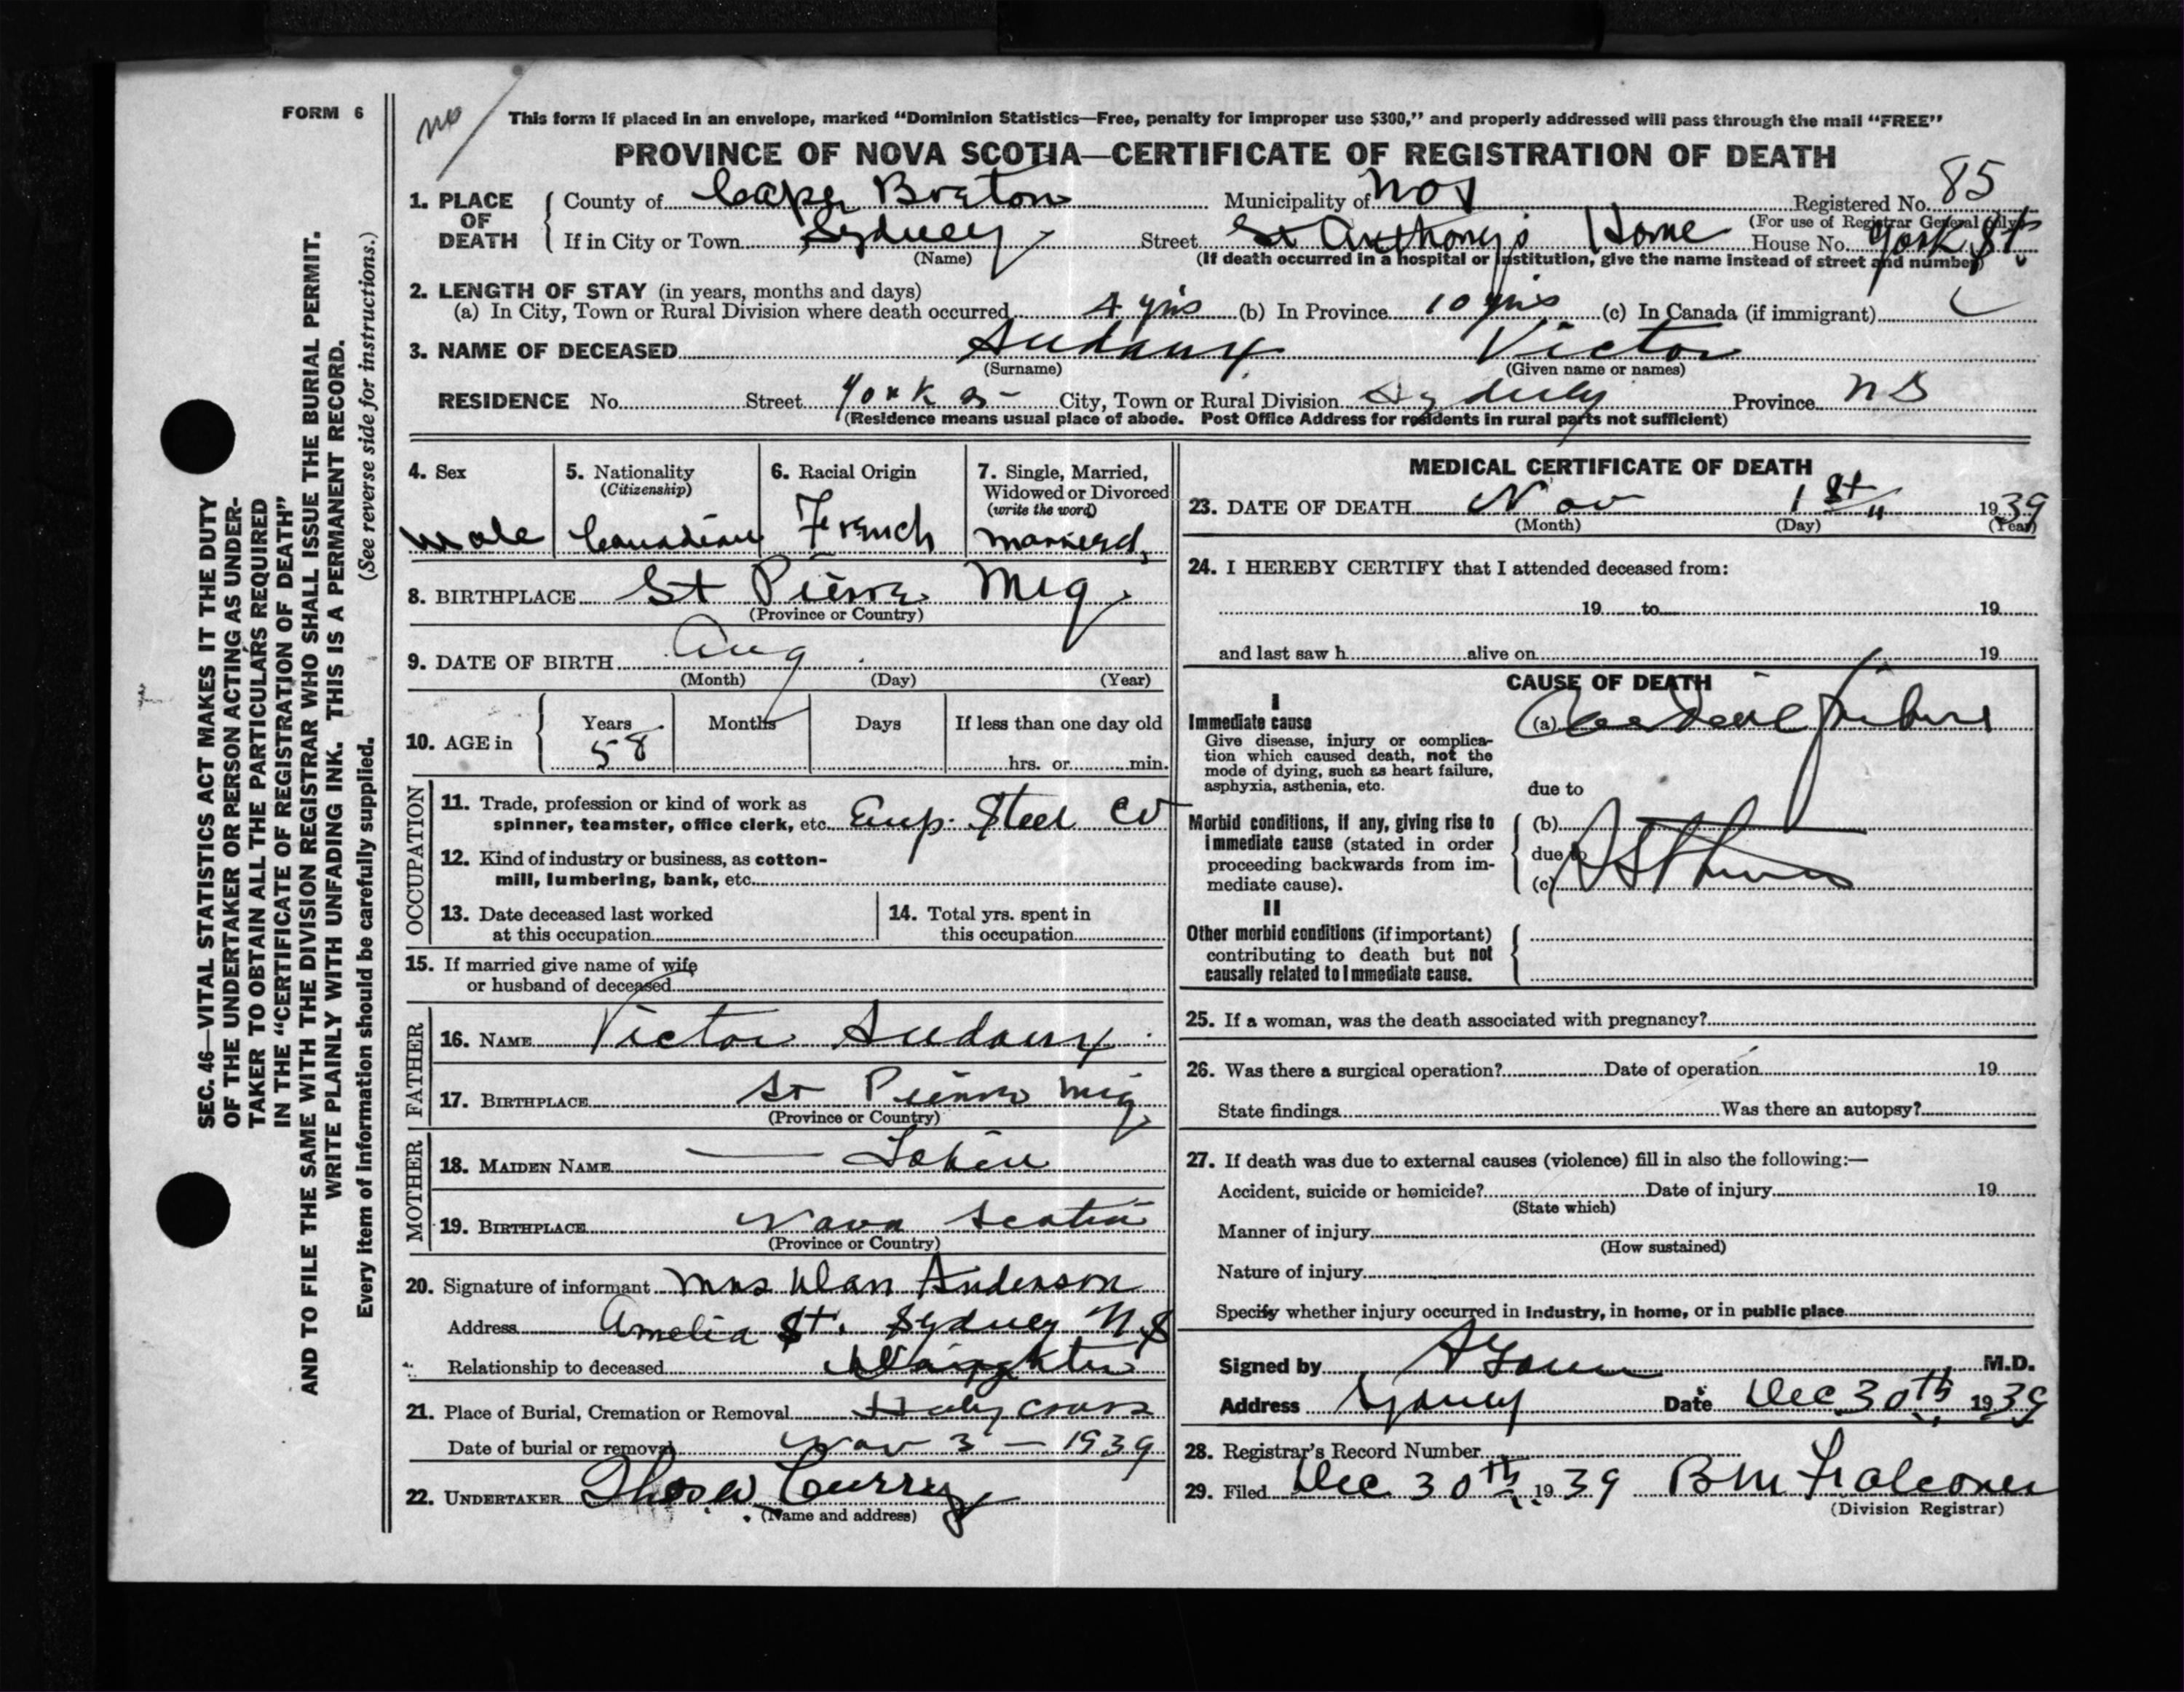 FORM 6
no
This form if placed in an envelope, marked “Dominion Statistics—Free, penalty for improper use $300,” and properly addressed will pass through the mail “FREE”
PROVINCE OF NOVA SCOTIA—CERTIFICATE OF REGISTRATION OF DEATH
1. PLACE OF DEATH
County of Cape Breton Municipality of Registered No. 85
(For use of Registrar General only)
If in City or Town Sydney Street St Anthony's Home House No. York St.
(Name) (If death occurred in a hospital or institution, give the name instead of street and number)
2. LENGTH OF STAY (in years, months and days)
(a) In City, Town or Rural Division where death occurred 4 yrs (b) In Province 10 yrs (c) In Canada (if immigrant)
3. NAME OF DECEASED Audaux Victor
(Surname) (Given name or names)
RESIDENCE No. Street York City, Town or Rural Division Sydney Province N S
(Residence means usual place of abode. Post Office Address for residents in rural parts not sufficient)
4. Sex
male
5. Nationality
(Citizenship)
Canadian
6. Racial Origin
French
7. Single, Married,
Widowed or Divorced
(write the word)
married
8. BIRTHPLACE St Pierre Miq.
(Province or Country)
9. DATE OF BIRTH Aug
(Month) (Day) (Year)
10. AGE in Years Months Days If less than one day old
58 hrs. or min.
OCCUPATION
11. Trade, profession or kind of work as
spinner, teamster, office clerk, etc. Emp. Steel Co
12. Kind of industry or business, as cotton-
mill, lumbering, bank, etc.
13. Date deceased last worked
at this occupation
14. Total yrs. spent in
this occupation
15. If married give name of wife
or husband of deceased
FATHER
16. NAME Victor Audaux
17. BIRTHPLACE St Pierre Miq
(Province or Country)
MOTHER
18. MAIDEN NAME —
19. BIRTHPLACE Nova Scotia
(Province or Country)
20. Signature of informant Mrs Dan Anderson
Address Amelia St. Sydney N.S
Relationship to deceased Daughter
21. Place of Burial, Cremation or Removal Holy Cross
Date of burial or removal Nov 3 — 1939
22. UNDERTAKER Thos W Curry
(Name and address)
MEDICAL CERTIFICATE OF DEATH
23. DATE OF DEATH Nov 1st 1939
(Month) (Day) (Year)
24. I HEREBY CERTIFY that I attended deceased from:
19 to 19
and last saw h alive on 19
CAUSE OF DEATH
I
Immediate cause
Give disease, injury or complica-
tion which caused death, not the
mode of dying, such as heart failure,
asphyxia, asthenia, etc.
(a) Cardiac failure
due to
Morbid conditions, if any, giving rise to
immediate cause (stated in order
proceeding backwards from im-
mediate cause).
(b)
due to
(c) Asthma
II
Other morbid conditions (if important)
contributing to death but not
causally related to immediate cause.
25. If a woman, was the death associated with pregnancy?
26. Was there a surgical operation? Date of operation 19
State findings Was there an autopsy?
27. If death was due to external causes (violence) fill in also the following:—
Accident, suicide or homicide? Date of injury 19
(State which)
Manner of injury
(How sustained)
Nature of injury
Specify whether injury occurred in industry, in home, or in public place
Signed by M.D.
Address Sydney Date Dec 30th 1939
28. Registrar's Record Number
29. Filed Dec 30th 1939 B M Falconer
(Division Registrar)
SEC. 46—VITAL STATISTICS ACT MAKES IT THE DUTY
OF THE UNDERTAKER OR PERSON ACTING AS UNDER-
TAKER TO OBTAIN ALL THE PARTICULARS REQUIRED
IN THE “CERTIFICATE OF REGISTRATION OF DEATH”
AND TO FILE THE SAME WITH THE DIVISION REGISTRAR WHO SHALL ISSUE THE BURIAL PERMIT.
WRITE PLAINLY WITH UNFADING INK. THIS IS A PERMANENT RECORD.
Every item of information should be carefully supplied. (See reverse side for instructions.)